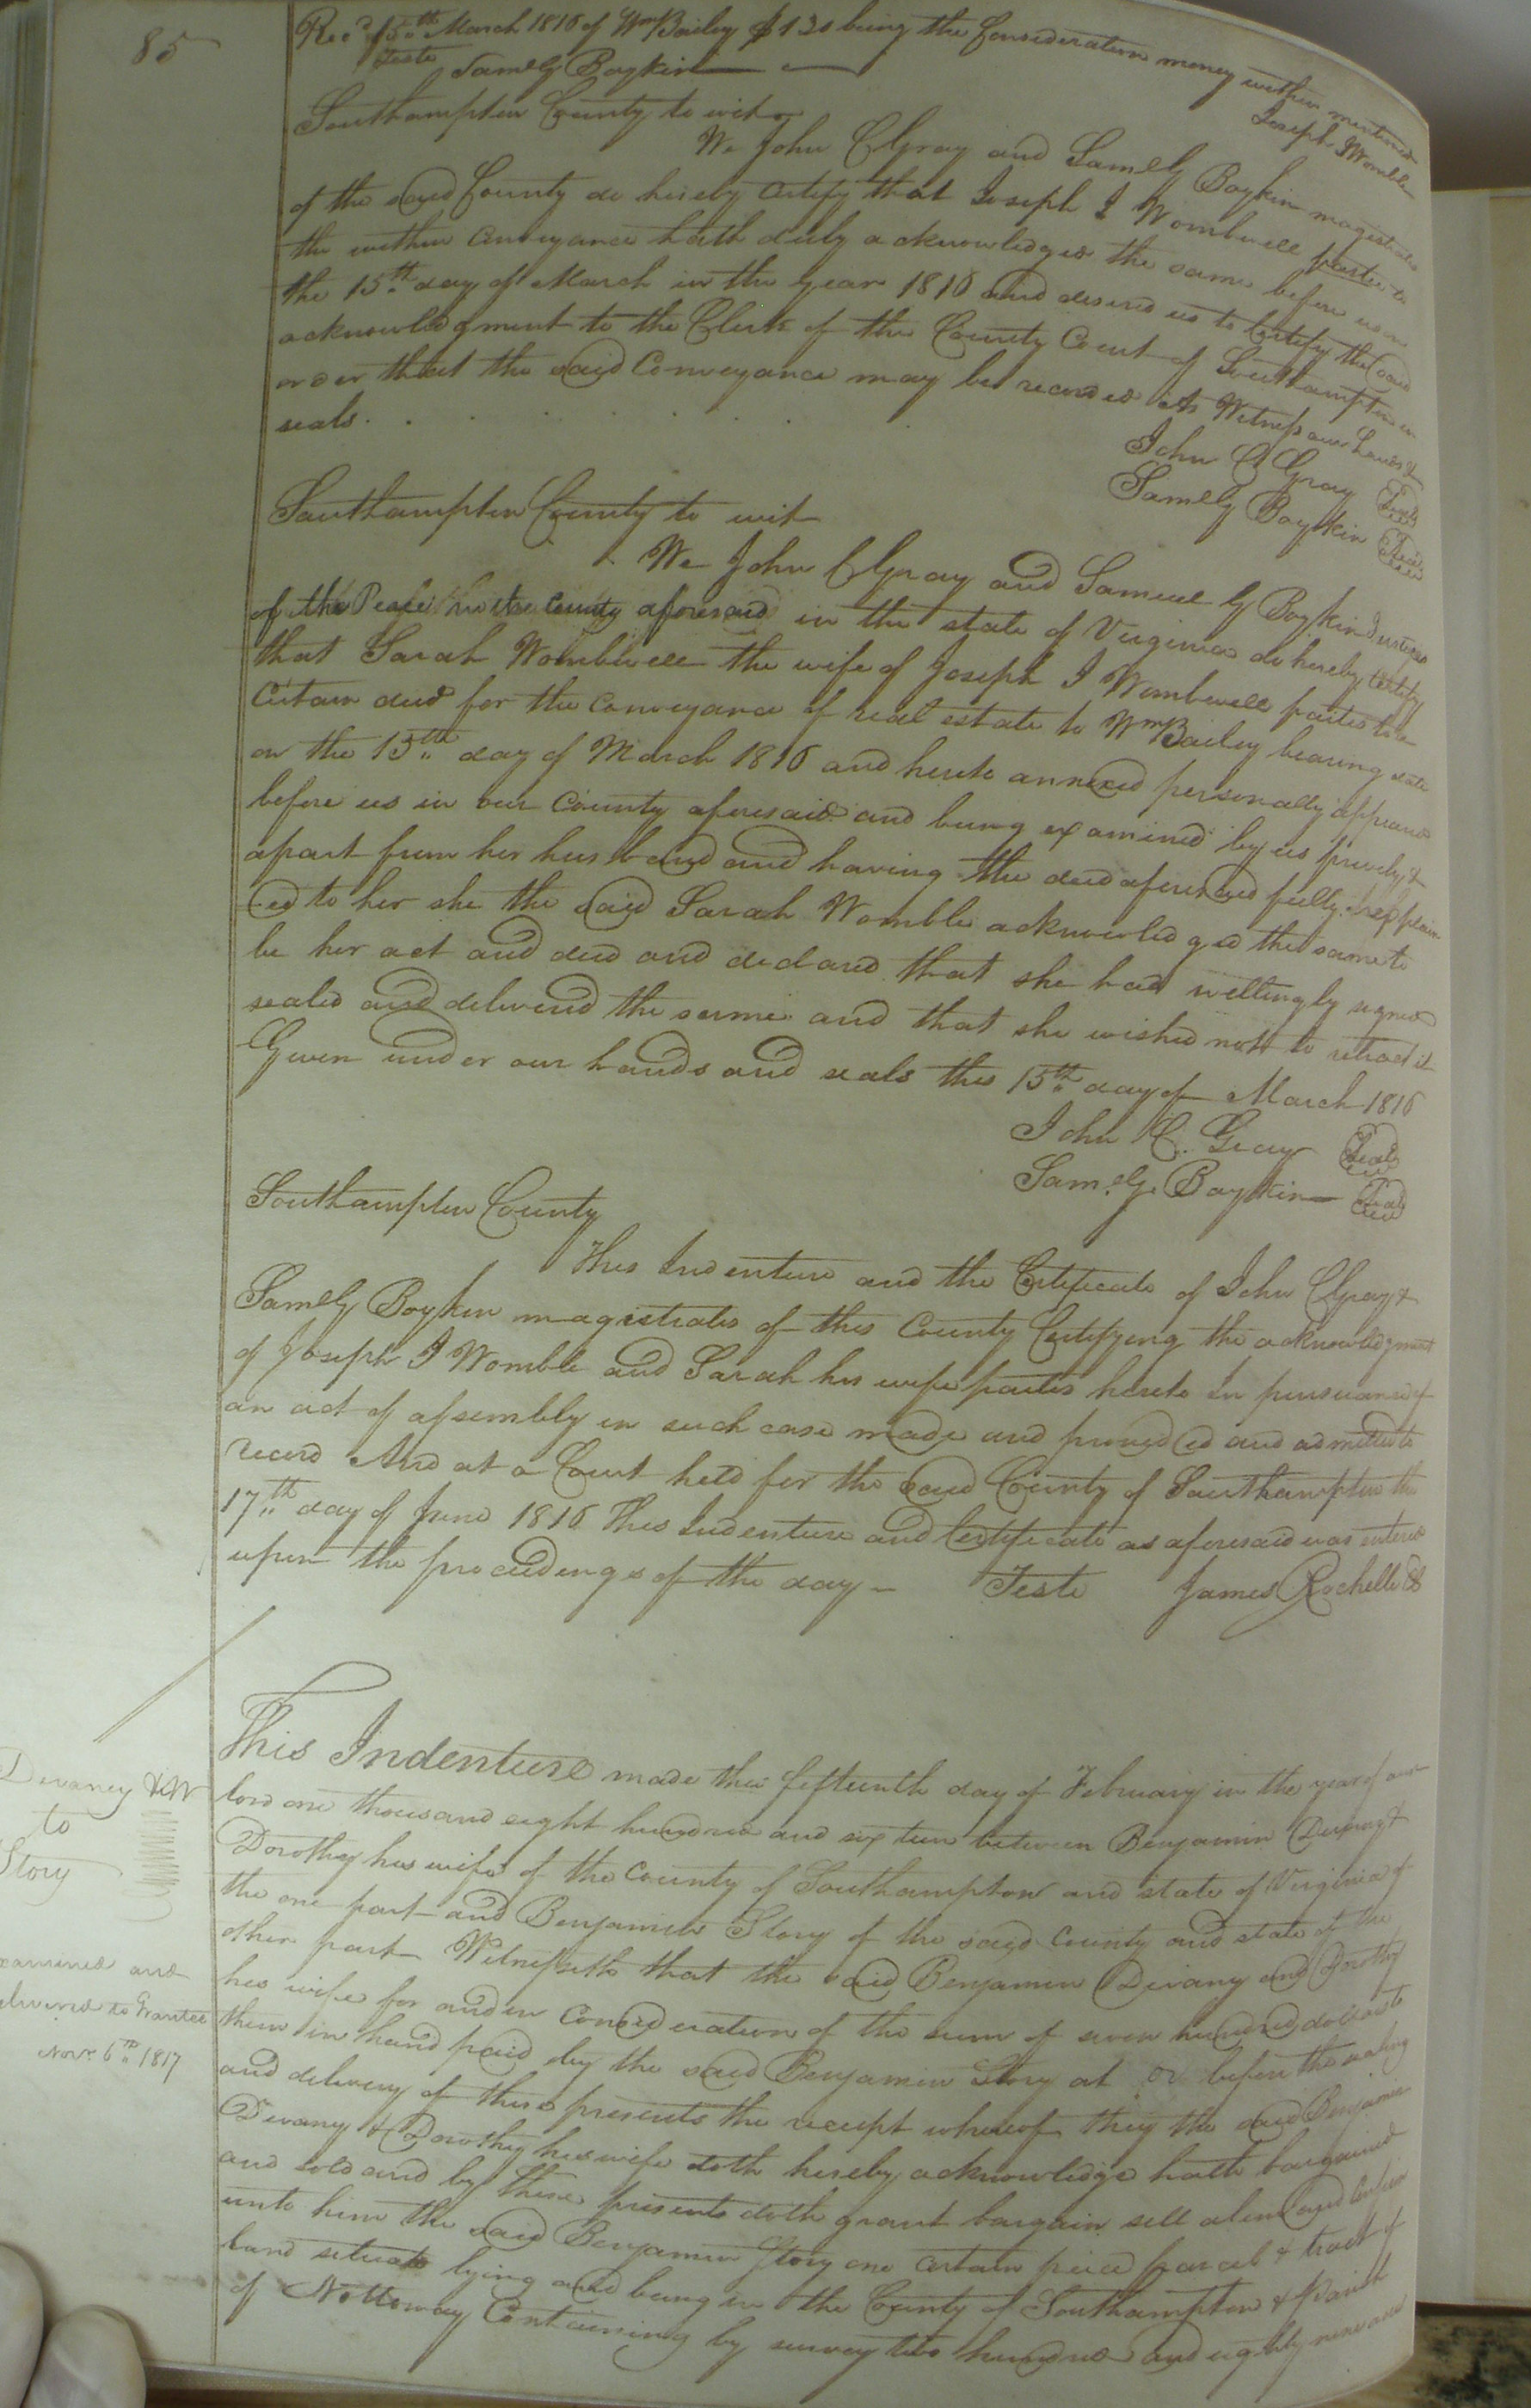 85
Rec.d 15.th March 1816 of Wm Bailey $130 being the Consideration money within mentioned
Teste Saml G Boykin Joseph J Womble
Southampton County to wit
We John C Gray and Saml G Boykin magistrates
of the said County do hereby Certify that Joseph J Wombwell partee to
the within Conveyance hath duly acknowledged the same before us on
the 15.th day of March in the year 1816 and desired us to Certify the said
acknowledgment to the Clerk of the County Court of Southampton in
order that the said Conveyance may be recorded As Witness our hands &
seals.
John C Gray Seal
Saml G Boykin Seal
Southampton County to wit
We John C Gray and Samuel G Boykin Justices
of the Peace in the County aforesaid in the state of Virginia do hereby Certify
that Sarah Wombwell the wife of Joseph J Wombwell parties to a
Certain deed for the Conveyance of real estate to Wm Bailey bearing date
on the 15.th day of March 1816 and hereto annexed personally appeared
before us in our County aforesaid and being examined by us privily &
apart from her husband and having the deed aforesaid fully explain
ed to her she the said Sarah Womble acknowledged the same to
be her act and deed and declared that she had willingly signed
sealed and delivered the same and that she wished not to retract it
Given under our hands and seals this 15.th day of March 1816
John C. Gray Seal
Sam.l G. Boykin Seal
Southampton County
This Indenture and the Certificate of John C Gray &
Saml G Boykin magistrates of this County Certifying the acknowledgment
of Joseph J Womble and Sarah his wife parties hereto In pursuance of
an act of assembly in such case made and provided and admitted to
record And at a Court held for the said County of Southampton the
17.th day of June 1816 This Indenture and Certificate as aforesaid was entered
upon the proceedings of the day Teste James Rochelle
Devaney & W
to
Story
Examined and
delivered to Grantee
Nov.r 6.th 1817
This Indenture made this fifteenth day of February in the year of our
lord one thousand eight hundred and sixteen between Benjamin Devany &
Dorothy his wife of the County of Southampton and state of Virginia of
the one part and Benjamin Story of the said County and state of the
other part Witnesseth that the said Benjamin Devany and Dorothy
his wife for and in Consideration of the sum of seven hundred dollars to
them in hand paid by the said Benjamin Story at or before the sealing
and delivery of these presents the receipt whereof they the said Benjamin
Devany & Dorothy his wife doth hereby acknowledge hath bargained
and sold and by these presents doth grant bargain sell alien and Confirm
unto him the said Benjamin Story one Certain piece parcel & tract of
land situate lying and being in the County of Southampton & Parish
of Nottoway Containing by survey two hundred and eighty nine and